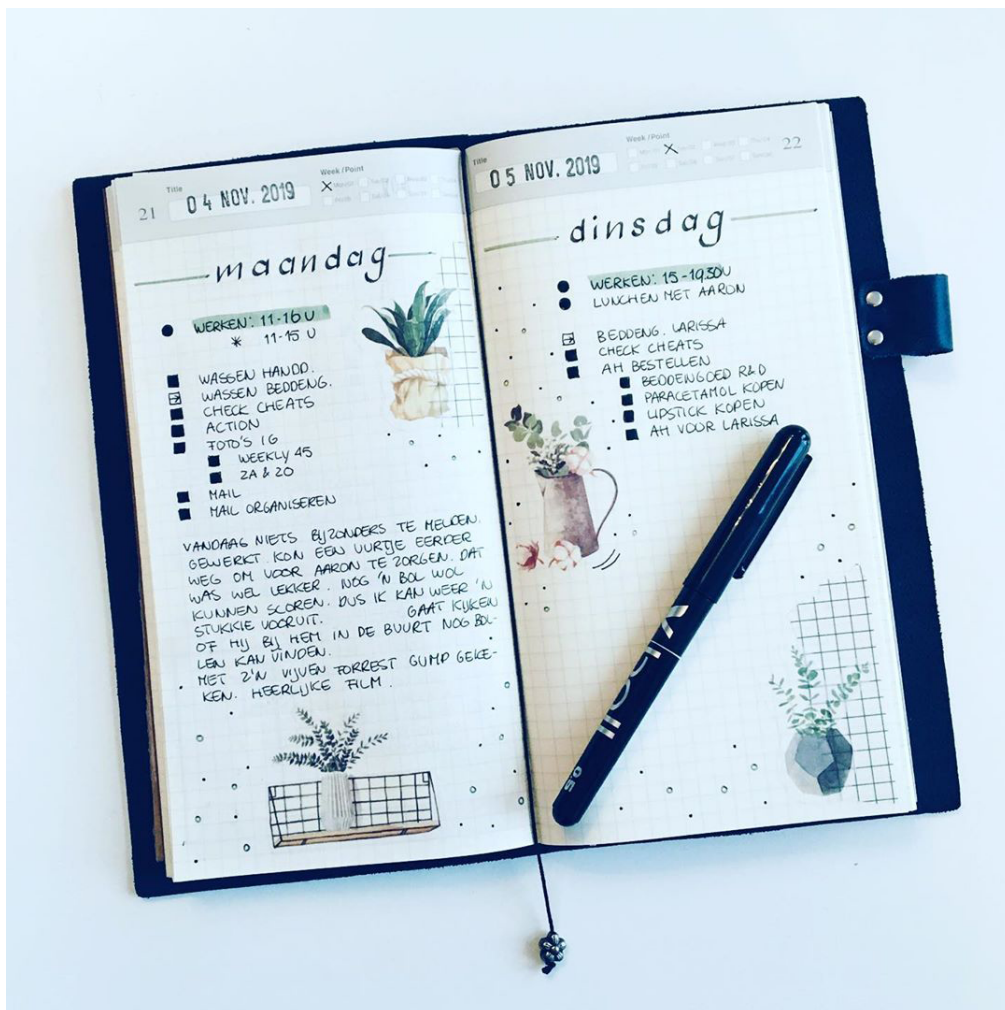 Title
Week / Point
21
04 NOV. 2019
maandag
WERKEN: 11-16 U
* 11-15 U
WASSEN HANDD.
WASSEN BEDDENG.
CHECK CHEATS
ACTION
FOTO'S IG
WEEKLY 45
ZA & ZO
MAIL
MAIL ORGANISEREN
VANDAAG NIETS BIJZONDERS TE MELDEN.
GEWERKT KON EEN UURTJE EERDER
WEG OM VOOR AARON TE ZORGEN. DAT
WAS WEL LEKKER. NOG 'N BOL WOL
KUNNEN SCOREN. DUS IK KAN WEER 'N
STUKKIE VOORUIT. GAAT KIJKEN
OF HIJ BIJ HEM IN DE BUURT NOG BOL-
LEN KAN VINDEN.
MET Z'N VIJVEN FORREST GUMP GEKE-
KEN. HEERLIJKE FILM.
Title
Week / Point
22
05 NOV. 2019
dinsdag
WERKEN: 15-19.30U
LUNCHEN MET AARON
BEDDENG. LARISSA
CHECK CHEATS
AH BESTELLEN
BEDDENGOED R&D
PARACETAMOL KOPEN
LIPSTICK KOPEN
AH VOOR LARISSA
0.5